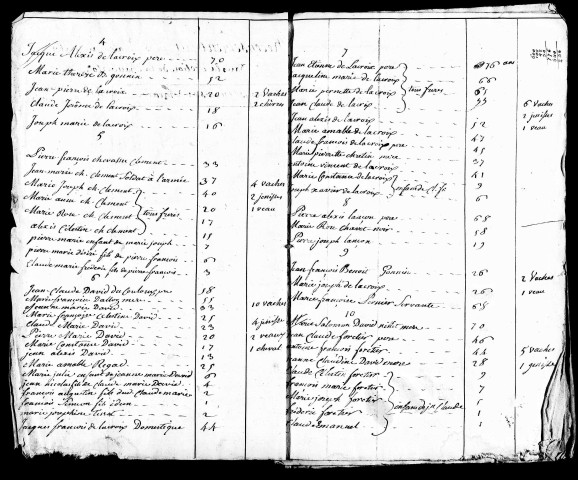 4
Jacque Alexis de lacroix pere 70
Marie therese de gounin 52
Jean-pierre de lacroix 20 2 Vaches
Claude Jerôme de lacroix 18 2 chèvres
Joseph marie de lacroix 16
5
Pierre françois chevassu clement 33
Jean marie ch. clement Soldat à l'armée 37 4 vaches
Marie joseph ch. clement 40 2 jenisses
Marie anne ch. clement 20 1 veau
Marie rose ch. clement tous freres 17
alexis Celestin ch. clement 15
pierre marie enfant de marie joseph 7
pierre marie désiré fils de pierre françois 6
Claude marie frederic fils de pierre françois 3
6
Jean Claude David du Coulouz pere 58
Marie françoise Dalloz mere 55
Jeanne marie David 33 10 vaches
Marie françoise Celestine David 25
Claude Marie David 23 4 jenisses
Pierre Marie David 20 2 veaux
Marie Constance David 17 1 cheval
jean alexis David 13
Marie amable Regad 25
Marie julie enfant de jeanne marie David 6
jean nicolas fils de Claude marie David 4
françois augustin fils dud. Claude marie 2
françois Simeon fils idem 1
marie josephine 2
Jacques françois de lacroix Domestique 44
7
Jean Etienne de Lacroix pere 76 ans
Jacqueline marie de lacroix 66
Marie pernette de lacroix tous freres 61
Jean Claude de lacroix 55 6 vaches
Jean alexis de lacroix 2 jenisses
Marie amable de lacroix 52 1 veau
Claude francois de lacroix 47
Marie pierrette chretin mere 45
antoine vincent de lacroix 37
Marie Constance de lacroix 41
joseph xavier de lacroix enfans de Cl. fs 9
6
8
Pierre alexis lançon pere 68
Marie Rose Chavet mere 58
Pierre joseph lançon 19
9
Jean françois Benoit Gounin 26 2 Vaches
Marie joseph de lacroix 26 1 veau
Marie françoise Servante 65
10
Marie Salomée David mere 70
jean Claude forestier pere 46
antoine françois forestier 44 5 vaches
jeanne Claudine David mere 28
Claude Celestin forestier 9
françois marie forestier 7
Marie joseph forestier enfans de jn Claude 5
frederic forestier 1
Claude emanuel 1